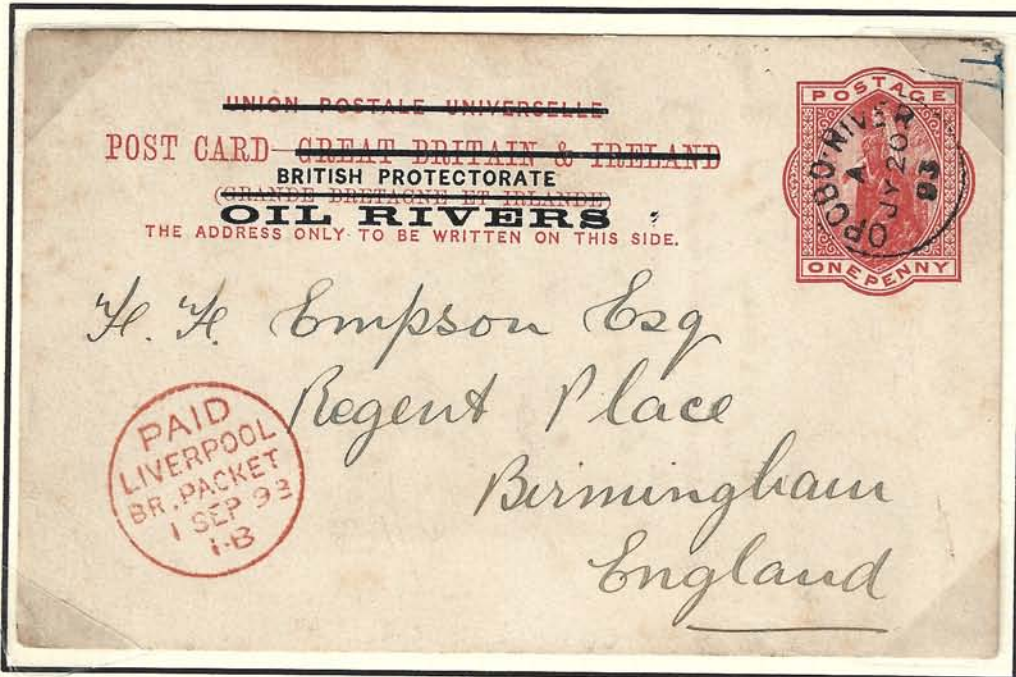 UNION POSTALE UNIVERSELLE
POST CARD - GREAT BRITAIN & IRELAND
BRITISH PROTECTORATE
(GRANDE BRETAGNE ET IRLANDE)
OIL RIVERS
THE ADDRESS ONLY TO BE WRITTEN ON THIS SIDE.
POSTAGE
ONE PENNY
OPOBO·RIVER
A
JY 20
93
H. H. Empson Esq
Regent Place
Birmingham
England
PAID
LIVERPOOL
BR. PACKET
1 SEP 93
1·B